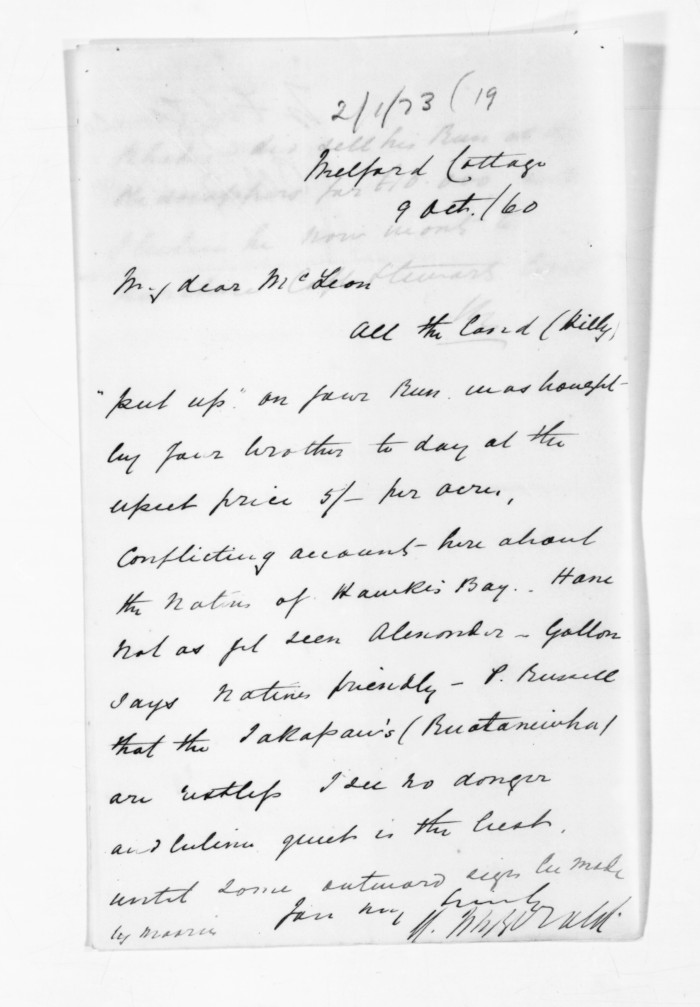 2/1/73 (19
Melford Cottage
9 Oct. /60
My dear McLean
All the Land (Hilly)
"put up" on your Run was bought
by your brother to day at the
upset price 5/- per acre,
Conflicting account here about
the Natives of Hawke's Bay.. Have
not as yet seen Alexander - Gollon
says Natives friendly - P. Russell
that the Takapau's (Ruataniwha)
are restless I see no danger
and believe quiet is the best,
until some outward sign be made
by Maories
You may